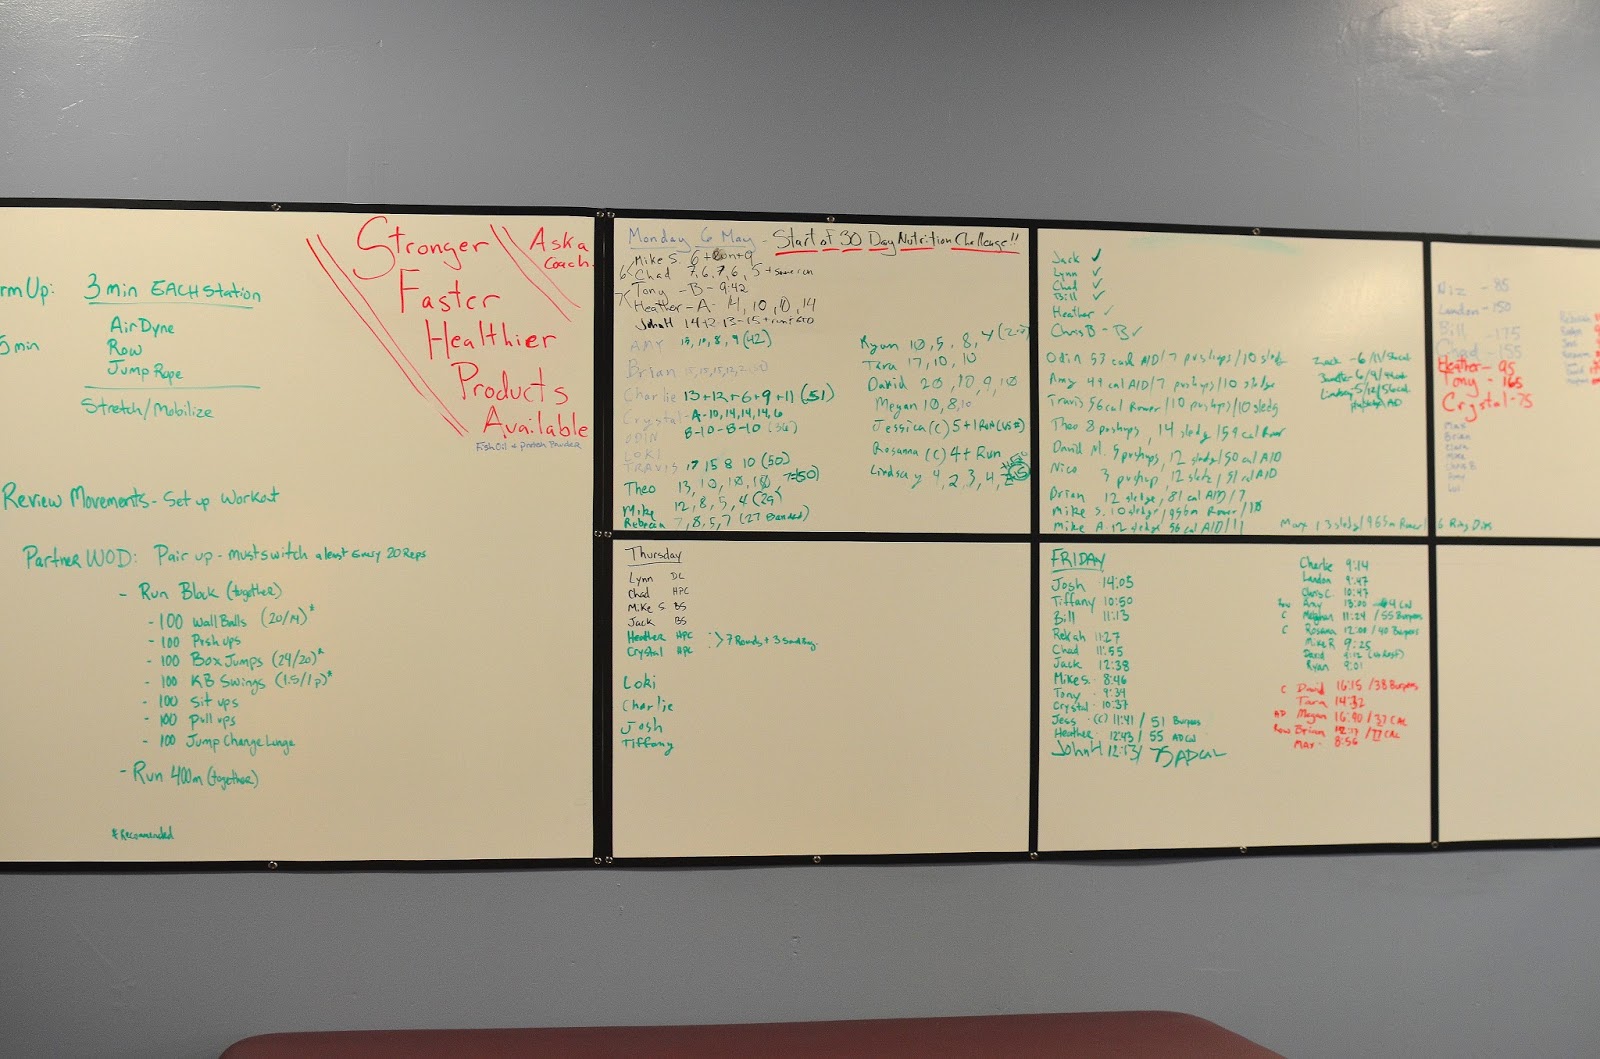 rmUp: 3 min EACH Station
5 min
Air Dyne
Row
Jump Rope
Stretch/Mobilize
Stronger
Faster
Healthier
Products
Available
Ask a
Coach.
Fish Oil & Protein Powder
Review Movements - Set up Workout
Partner WOD: Pair up - must switch at least Every 20 Reps
- Run Block (together)
- 100 Wall Balls (20/14)*
- 100 Push ups
- 100 Box Jumps (24/20)*
- 100 KB Swings (1.5/1p)*
- 100 Sit ups
- 100 Pull ups
- 100 Jump Change Lunge
- Run 400m (together)
*Recommended
Monday 6 May - Start of 30 Day Nutrition Challenge!!
Mike S.
Chad 7, 6, 7, 6, 5 +
Tony - B - 9:42
Heather - A - 14, 10, 10, 14
John H 14+12+13-15+
AMY 13, 10, 8, 9 (42)
Brian 15, 15, 15, 13, 2
Charlie 13+12+6+9+11 (51)
Crystal - A-10, 14, 14, 14, 6
ODIN 8-10-8-10 (36)
LOKI
TRAVIS 17 15 8 10 (50)
Theo 13, 10, 10, 10,
Mike 12, 8, 5, 4 (29)
Rebecca 7, 8, 5, 7 (27 Banded)
Ryan 10, 5, 8, 4
Tara 17, 10, 10
David 20, 10, 9, 10
Megan 10, 8, 10
Jessica (C) 5 + 1 Run
Rosanna (C) 4 + Run
Lindsay 4, 2, 3, 4,
Jack ✓
Lynn ✓
Chad ✓
Bill ✓
Heather ✓
Chris B - B ✓
Odin 53 cal A/D/7 pushups/10 sledg
Amy 44 cal A/D/7 pushups/10 sledge
Travis 56 cal Rower/10 pushups/10 sledg
Theo 8 pushups, 14 sledg/59 cal Rower
David M. 5 pushups, 12 sledg/50 cal A/D
Nico 3 pushup, 12 sledg/51 cal A/D
Brian 12 sledge, 81 cal A/D/7
Mike S. 10 sledge/996m Rower/10
Mike A. 12 sledge/56 cal A/D/11
Max 13 sledg/965m Rower/6 Ring Dips
Zack - 6/11/
6/9/
Lindsay - 5/12/56 cal
Niz - 85
Landon - 150
Bill - 175
Chad - 155
Heather - 95
Tony - 165
Crystal - 75
Max
Brian
Thursday
Lynn DL
Chad HPC
Mike S BS
Jack BS
Heather HPC
Crystal HPC
> 7 Rounds + 3 Sandbag.
Loki
Charlie
Josh
Tiffany
FRIDAY
Josh 14:05
Tiffany 10:50
Bill 11:13
Rekah 11:27
Chad 11:55
Jack 12:38
Mike S. 8:46
Tony - 9:39
Crystal - 10:37
Jess - (C) 11:41 / 51 Burpees
Heather - 12:43 / 55 AD Cal
John H 12:13 / 75 AD CAL
Charlie 9:14
Landon 9:47
Chris C. 10:47
Row Amy 13:00
C Meghan 11:24 / 55 Burpees
C Rosana 12:00 / 40 Burpees
Mike R 9:25
David
Ryan 9:01
C David 16:15 / 38 Burpees
Tara 14:32
AD Megan 16:40 / 37 CAL
Row Brian 12:17 / 77 CAL
MAX - 8:56